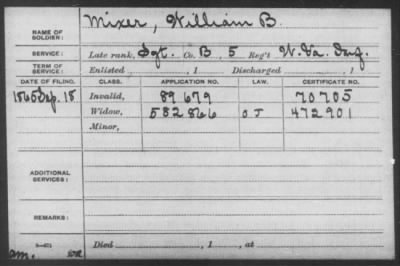 NAME OF SOLDIER: Mixer, William B.
SERVICE: Late rank, Sgt. Co. B, 5 Reg't W. Va. Inf.
TERM OF SERVICE: Enlisted , 1 Discharged , 1
DATE OF FILING. CLASS. APPLICATION NO. LAW. CERTIFICATE NO.
1865 Sep. 18 Invalid, 89 679 70705
Widow, 582 866 O J 472901
Minor,
ADDITIONAL SERVICES:
REMARKS:
Died , 1 , at